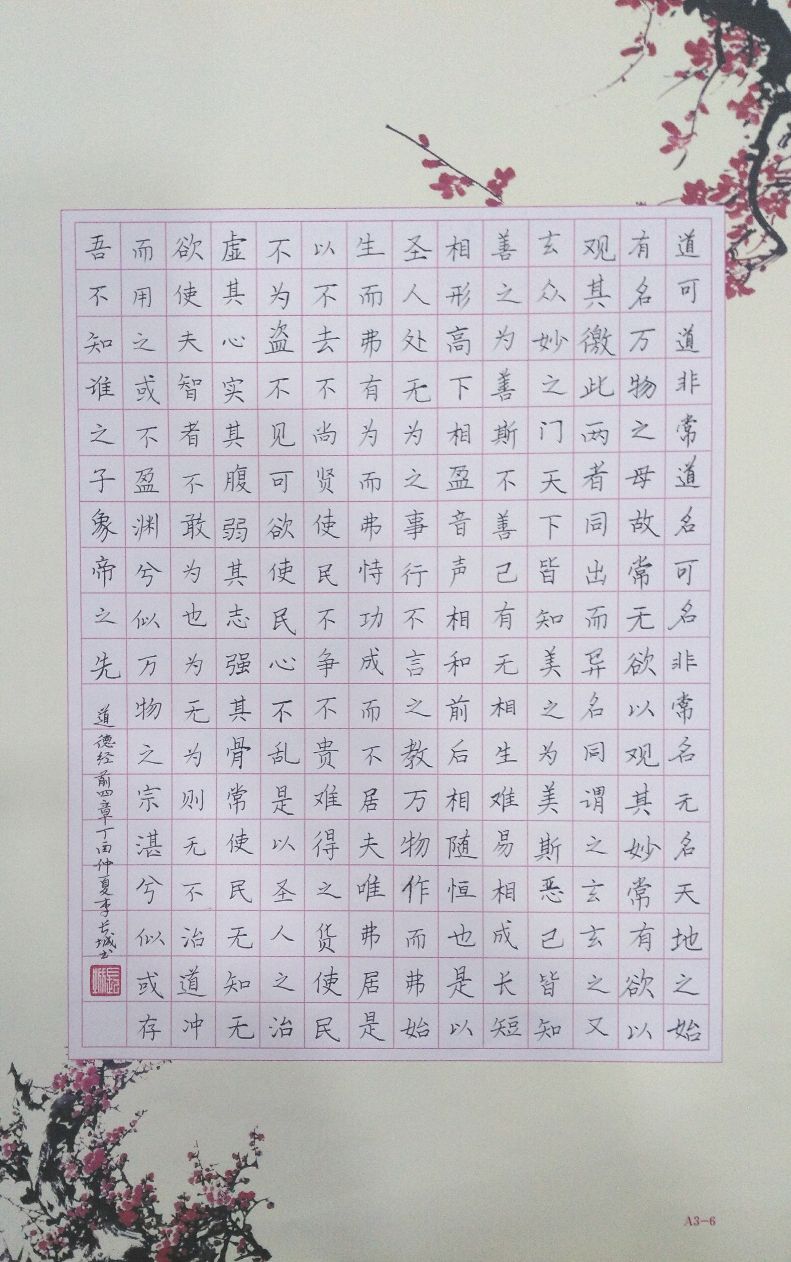 道可道非常道名可名非常名无名天地之始
有名万物之母故常无欲以观其妙常有欲以
观其徼此两者同出而异名同谓之玄玄之又
玄众妙之门天下皆知美之为美斯恶已皆知
善之为善斯不善已有无相生难易相成长短
相形高下相盈音声相和前后相随恒也是以
圣人处无为之事行不言之教万物作而弗始
生而弗有为而弗恃功成而不居夫唯弗居是
以不去不尚贤使民不争不贵难得之货使民
不为盗不见可欲使民心不乱是以圣人之治
虚其心实其腹弱其志强其骨常使民无知无
欲使夫智者不敢为也为无为则无不治道冲
而用之或不盈渊兮似万物之宗湛兮似或存
吾不知谁之子象帝之先
道德经前四章丁酉仲夏李长城书
A3-6